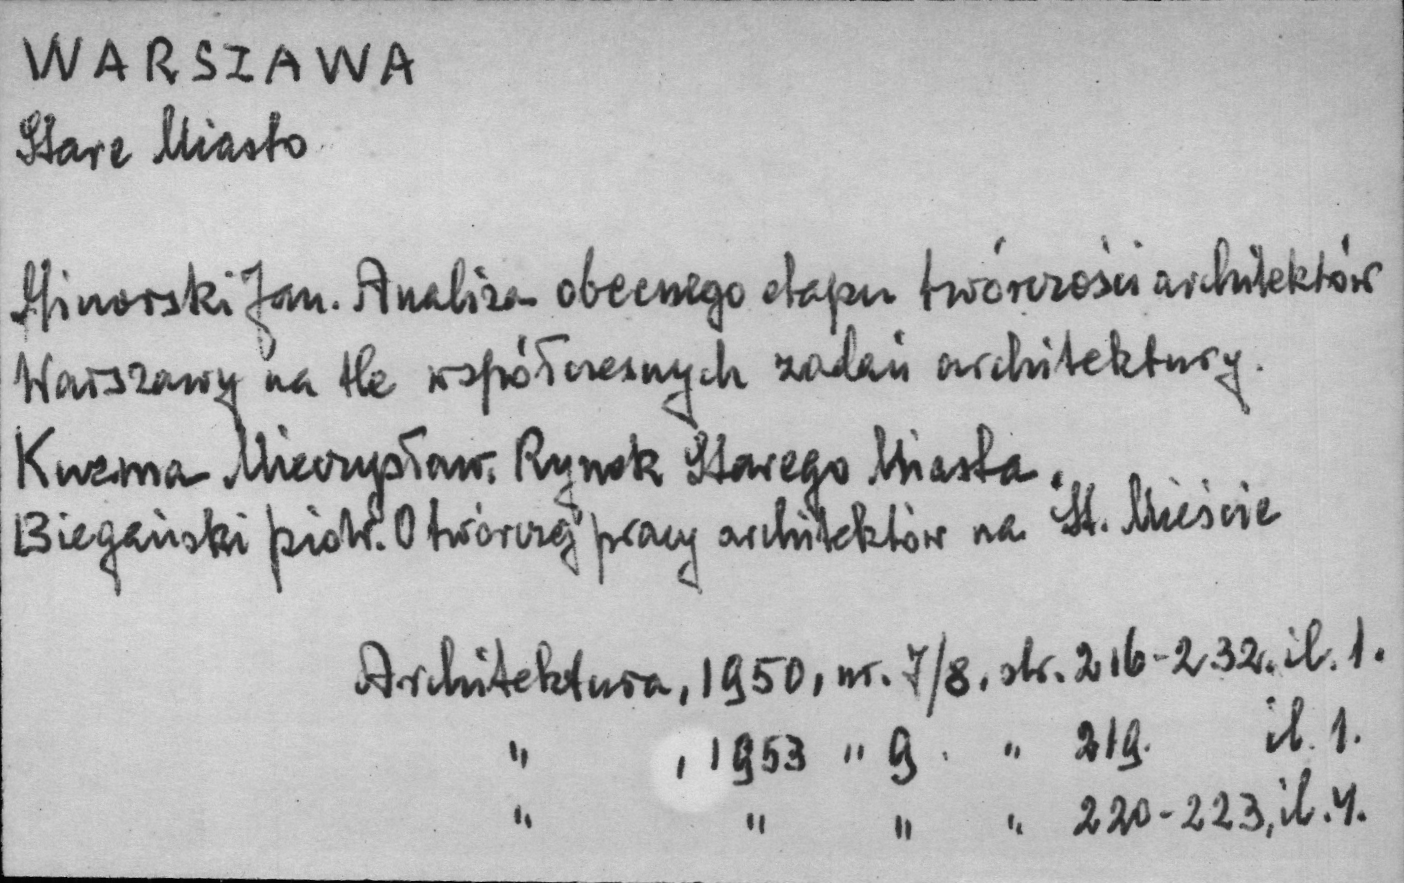 WARSZAWA
Stare Miasto
Minorski Jan. Analiza obecnego etapu twórczości architektów
Warszawy na tle współczesnych zadań architektury.
Kuzma Mieczysław. Rynek Starego Miasta.
Biegański piotr. O twórczej pracy architektów na St. Mieście
Architektura, 1950, nr. 7/8. str. 216-232. il. 1.
" , 1953 " 9. " 219. il. 1.
" " " " 220-223, il. 4.